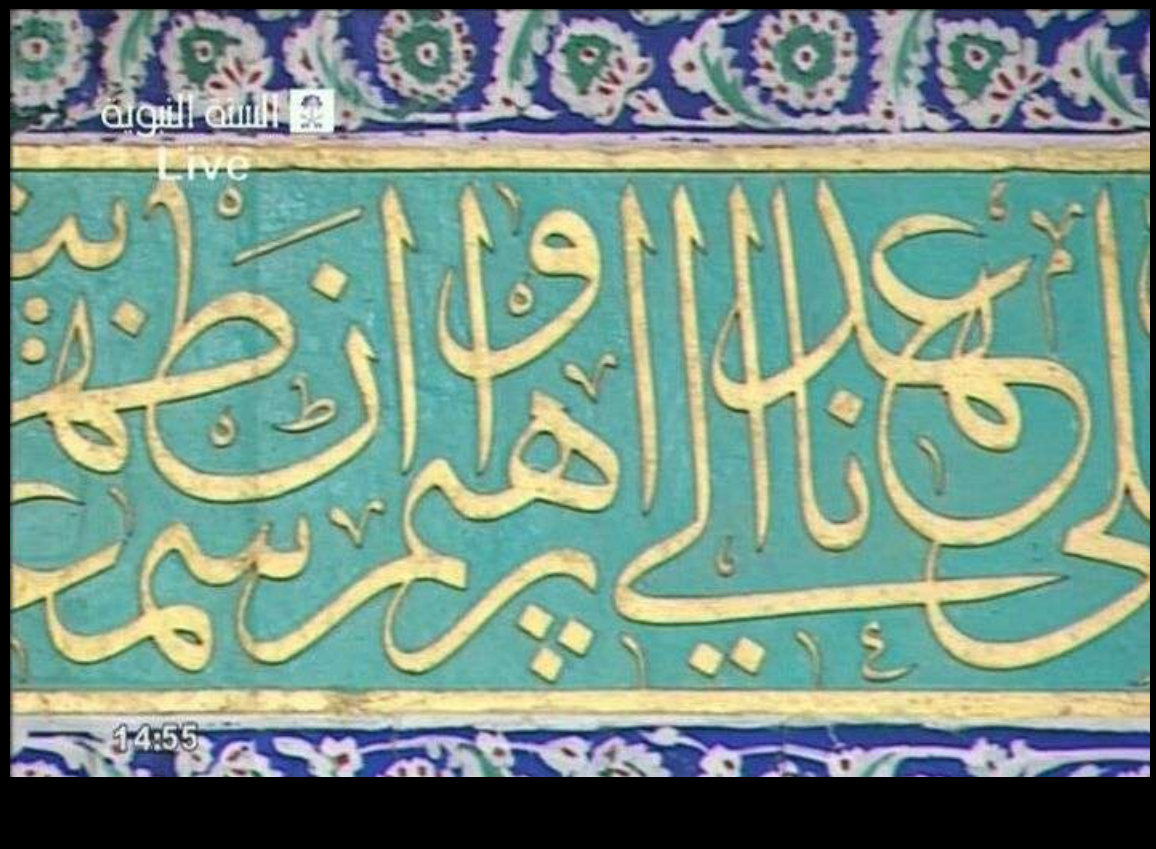 السنة النبوية
Live
وعهدنا الى ابرهيم واسمعيل ان طهرا
14:55